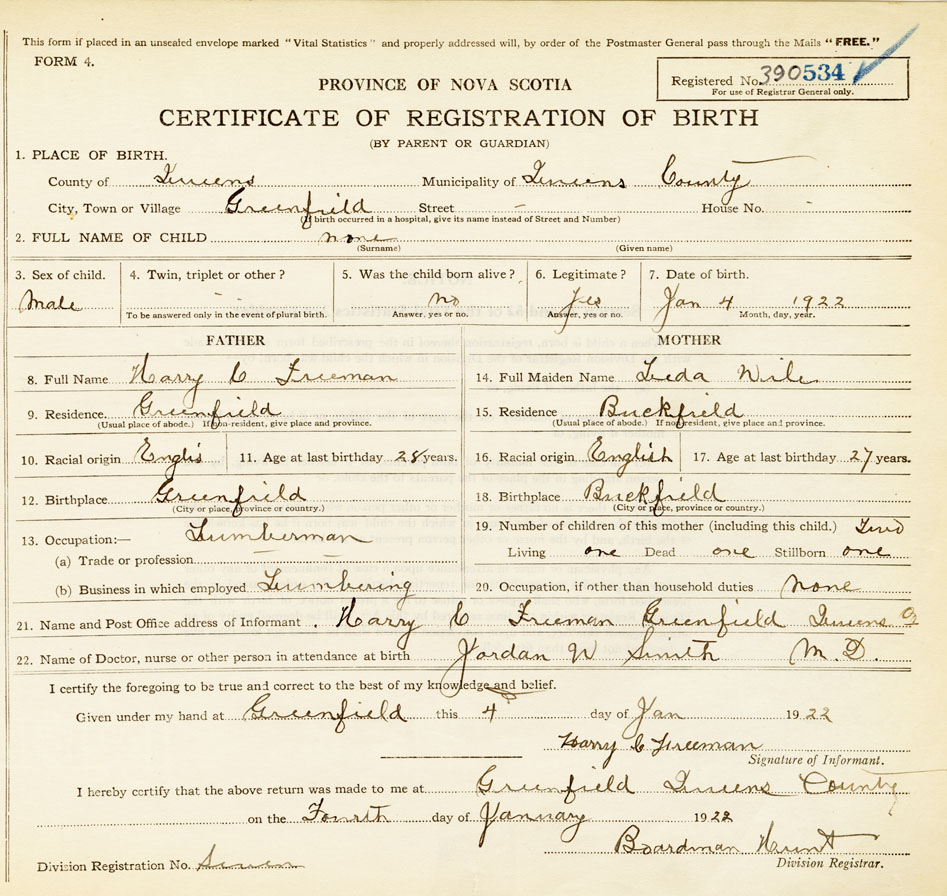 This form if placed in an unsealed envelope marked "Vital Statistics" and properly addressed will, by order of the Postmaster General pass through the Mails "FREE."
FORM 4.
Registered No. 390534
For use of Registrar General only.
PROVINCE OF NOVA SCOTIA
CERTIFICATE OF REGISTRATION OF BIRTH
(BY PARENT OR GUARDIAN)
1. PLACE OF BIRTH.
County of Queens Municipality of Queens County
City, Town or Village Greenfield Street - House No. -
(If birth occurred in a hospital, give its name instead of Street and Number)
2. FULL NAME OF CHILD none
(Surname) (Given name)
3. Sex of child. 4. Twin, triplet or other? 5. Was the child born alive? 6. Legitimate? 7. Date of birth.
Male - - no Yes Jan 4 1922
To be answered only in the event of plural birth. Answer, yes or no. Answer, yes or no. Month, day, year.
FATHER MOTHER
8. Full Name Harry C Freeman 14. Full Maiden Name Leda Wile
9. Residence. Greenfield 15. Residence Buckfield
(Usual place of abode.) If non-resident, give place and province. (Usual place of abode.) If non-resident, give place and province.
10. Racial origin Englis 11. Age at last birthday 28 years. 16. Racial origin English 17. Age at last birthday 27 years.
12. Birthplace Greenfield 18. Birthplace Buckfield
(City or place, province or country.) (City or place, province or country.)
13. Occupation:— Lumberman 19. Number of children of this mother (including this child.) Two
(a) Trade or profession Living one Dead one Stillborn one
(b) Business in which employed Lumbering 20. Occupation, if other than household duties none
21. Name and Post Office address of Informant . Harry C Freeman Greenfield Queens Co
22. Name of Doctor, nurse or other person in attendance at birth Jordan W Smith M.D.
I certify the foregoing to be true and correct to the best of my knowledge and belief.
Given under my hand at Greenfield this 4 day of Jan 1922
Harry C Freeman
Signature of Informant.
I hereby certify that the above return was made to me at Greenfield Queens County
on the Fourth day of January 1922
Boardman Hunt
Division Registrar.
Division Registration No. Seven